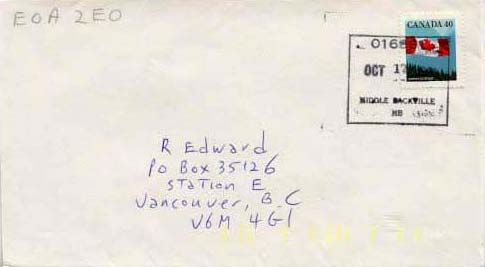 E0A 2E0
CANADA 40
OCT 17
MIDDLE SACKVILLE
NB
R Edward
PO Box 35126
Station E
Vancouver, B.C
V6M 4G1